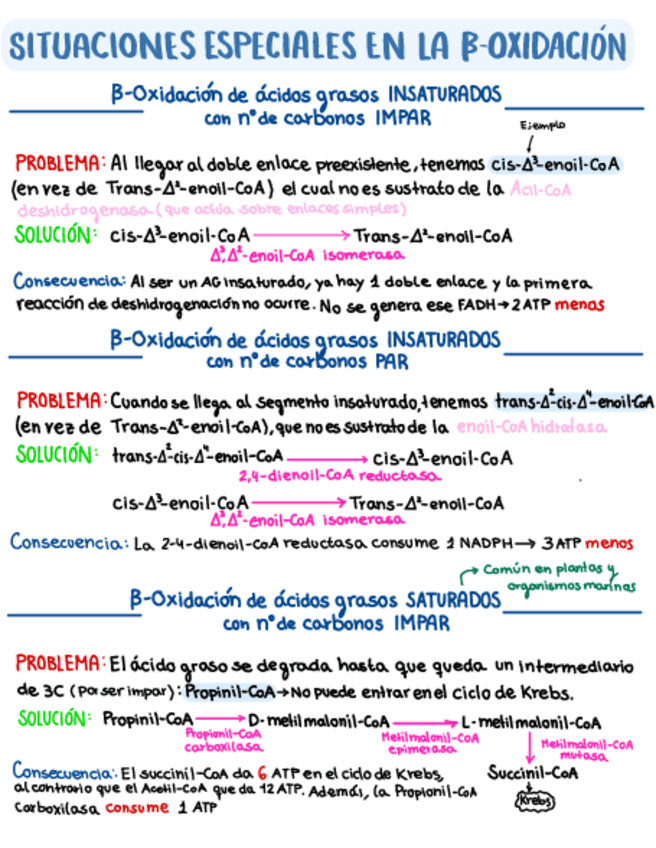 SITUACIONES ESPECIALES EN LA β-OXIDACIÓN
β-Oxidación de ácidos grasos INSATURADOS
con nº de carbonos IMPAR
Ejemplo
PROBLEMA: Al llegar al doble enlace preexistente, tenemos cis-Δ³-enoil-CoA
(en vez de Trans-Δ²-enoil-CoA) el cual no es sustrato de la Acil-CoA
deshidrogenasa (que actúa sobre enlaces simples)
SOLUCIÓN: cis-Δ³-enoil-CoA → Trans-Δ²-enoil-CoA
Δ³,Δ²-enoil-CoA isomerasa
Consecuencia: Al ser un AG insaturado, ya hay 1 doble enlace y la primera
reacción de deshidrogenación no ocurre. No se genera ese FADH→2 ATP menos
β-Oxidación de ácidos grasos INSATURADOS
con nº de carbonos PAR
PROBLEMA: Cuando se llega al segmento insaturado, tenemos trans-Δ²-cis-Δ⁴-enoil-CoA
(en vez de Trans-Δ²-enoil-CoA), que no es sustrato de la enoil-CoA hidratasa
SOLUCIÓN: trans-Δ²-cis-Δ⁴-enoil-CoA → cis-Δ³-enoil-CoA
2,4-dienoil-CoA reductasa
cis-Δ³-enoil-CoA → Trans-Δ²-enoil-CoA
Δ³,Δ²-enoil-CoA isomerasa
Consecuencia: La 2-4-dienoil-CoA reductasa consume 1 NADPH→ 3 ATP menos
→ Común en plantas y
organismos marinos
β-Oxidación de ácidos grasos SATURADOS
con nº de carbonos IMPAR
PROBLEMA: El ácido graso se degrada hasta que queda un intermediario
de 3C (por ser impar): Propinil-CoA→No puede entrar en el ciclo de Krebs.
SOLUCIÓN: Propinil-CoA → D-metilmalonil-CoA → L-metilmalonil-CoA
Propionil-CoA
carboxilasa
Metilmalonil-CoA
epimerasa
Metilmalonil-CoA
mutasa
Succinil-CoA
Krebs
Consecuencia: El succinil-CoA da 6 ATP en el ciclo de Krebs,
al contrario que el Acetil-CoA que da 12 ATP. Además, la Propionil-CoA
Carboxilasa consume 1 ATP